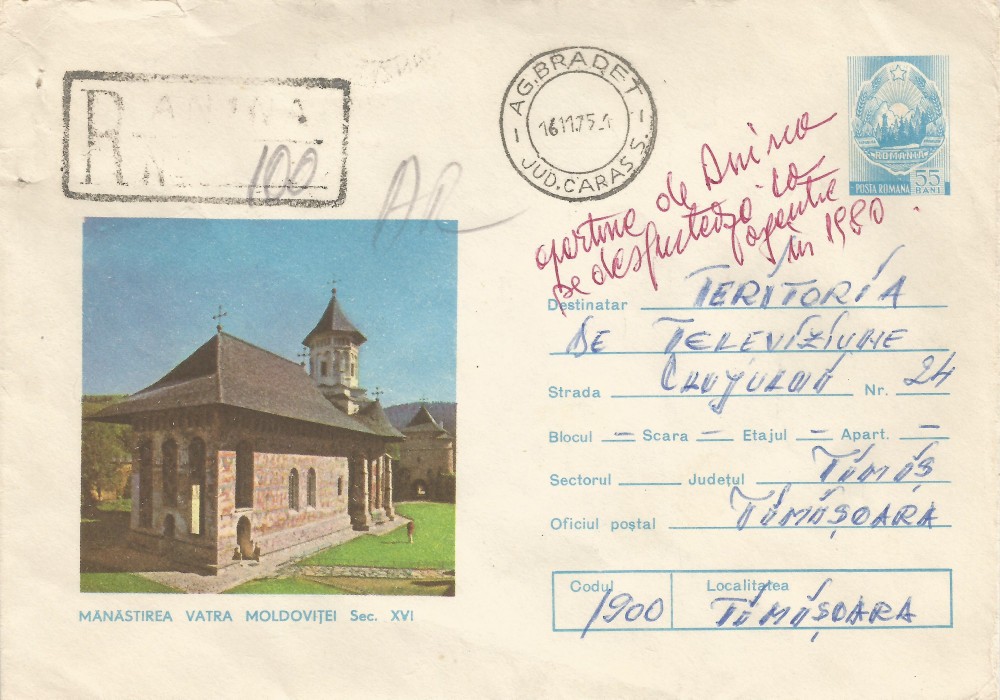 R ANINA
Nr.
100
AR
AG. BRADET
16.11.75.-1
JUD. CARAS S.
ROMANIA
POSTA ROMANA 55 BANI
aparține de Anina
se desființează ca
agenție
în 1980.
Destinatar TERITORIA
DE TELEVIZIUNE
Strada Nr. 24
Blocul — Scara — Etajul — Apart. —
Sectorul Județul TIMIȘ
Oficiul poștal TIMIȘOARA
Codul Localitatea
1900 TIMIȘOARA
MĂNĂSTIREA VATRA MOLDOVIȚEI Sec. XVI